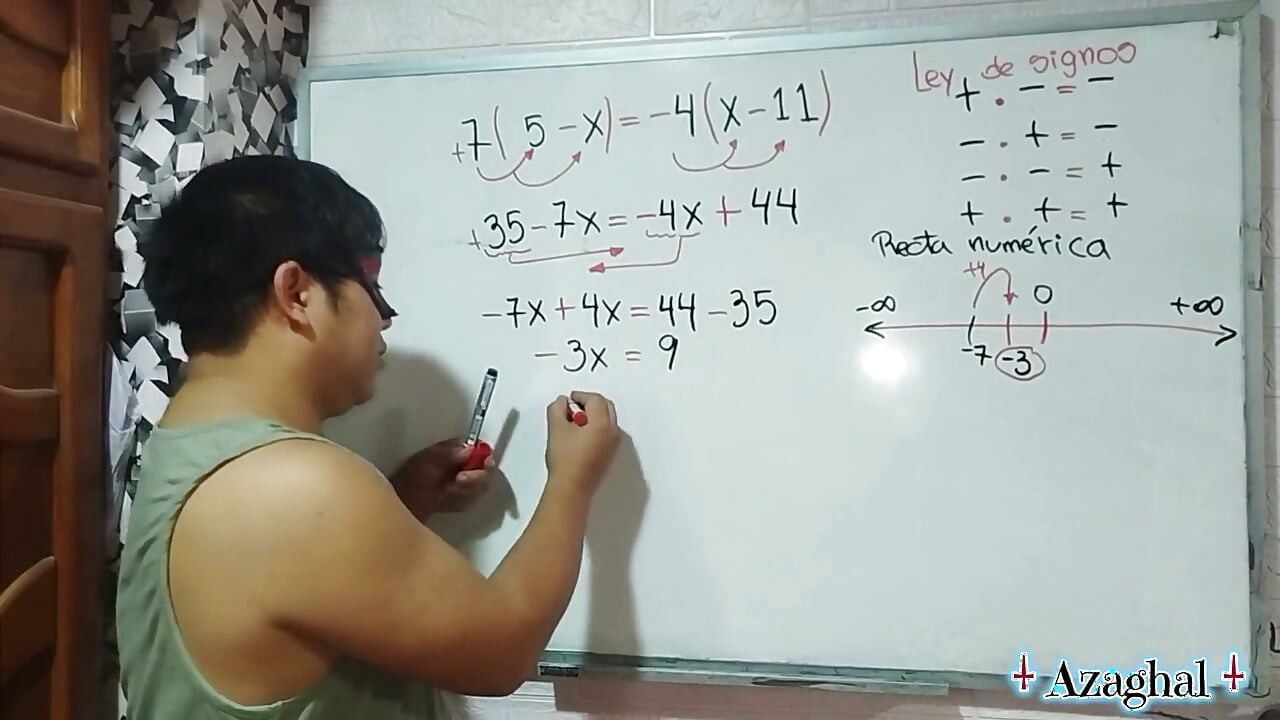 +7(5-x)=-4(x-11)
+35-7x=-4x+44
-7x+4x=44-35
-3x=9
Ley de signos
+ . - = -
- . + = -
- . - = +
+ . + = +
Recta numérica
+4
-∞ 0 +∞
-7 -3
Azaghal